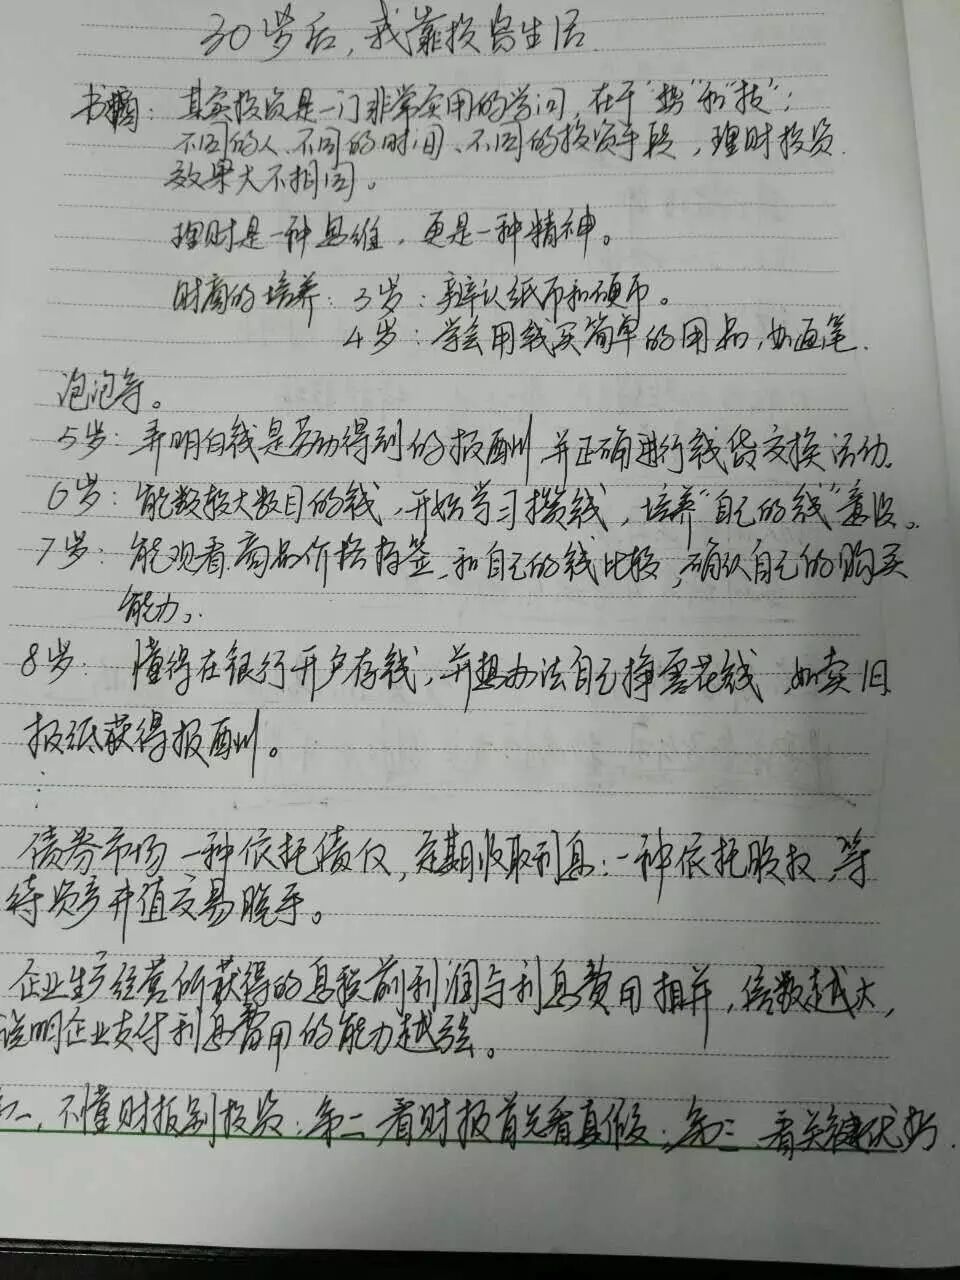 30岁后,我靠投资生活
书摘:其实投资是一门非常实用的学问,在于"势"和"技";
不同的人、不同的时间、不同的投资手段,理财投资
效果大不相同。
理财是一种思维,更是一种精神。
财商的培养:3岁:辨认纸币和硬币。
4岁:学会用钱买简单的用品,如画笔、
泡泡等。
5岁:弄明白钱是劳动得到的报酬,并正确进行钱货交换活动。
6岁:能数较大数目的钱,开始学习攒钱,培养"自己的钱"意识。
7岁:能观看商品价格标签,和自己的钱比较,确认自己的购买
能力。
8岁:懂得在银行开户存钱,并想办法自己挣零花钱,如卖旧
报纸获得报酬。
债券市场一种依托债权,定期收取利息;一种依托股权,等
待资产升值交易脱手。
企业生产经营所获得的息税前利润与利息费用相并,倍数越大,
说明企业支付利息费用的能力越强。
第一,不懂财报别投资;第二看财报首先看真假;第三看关键优势.